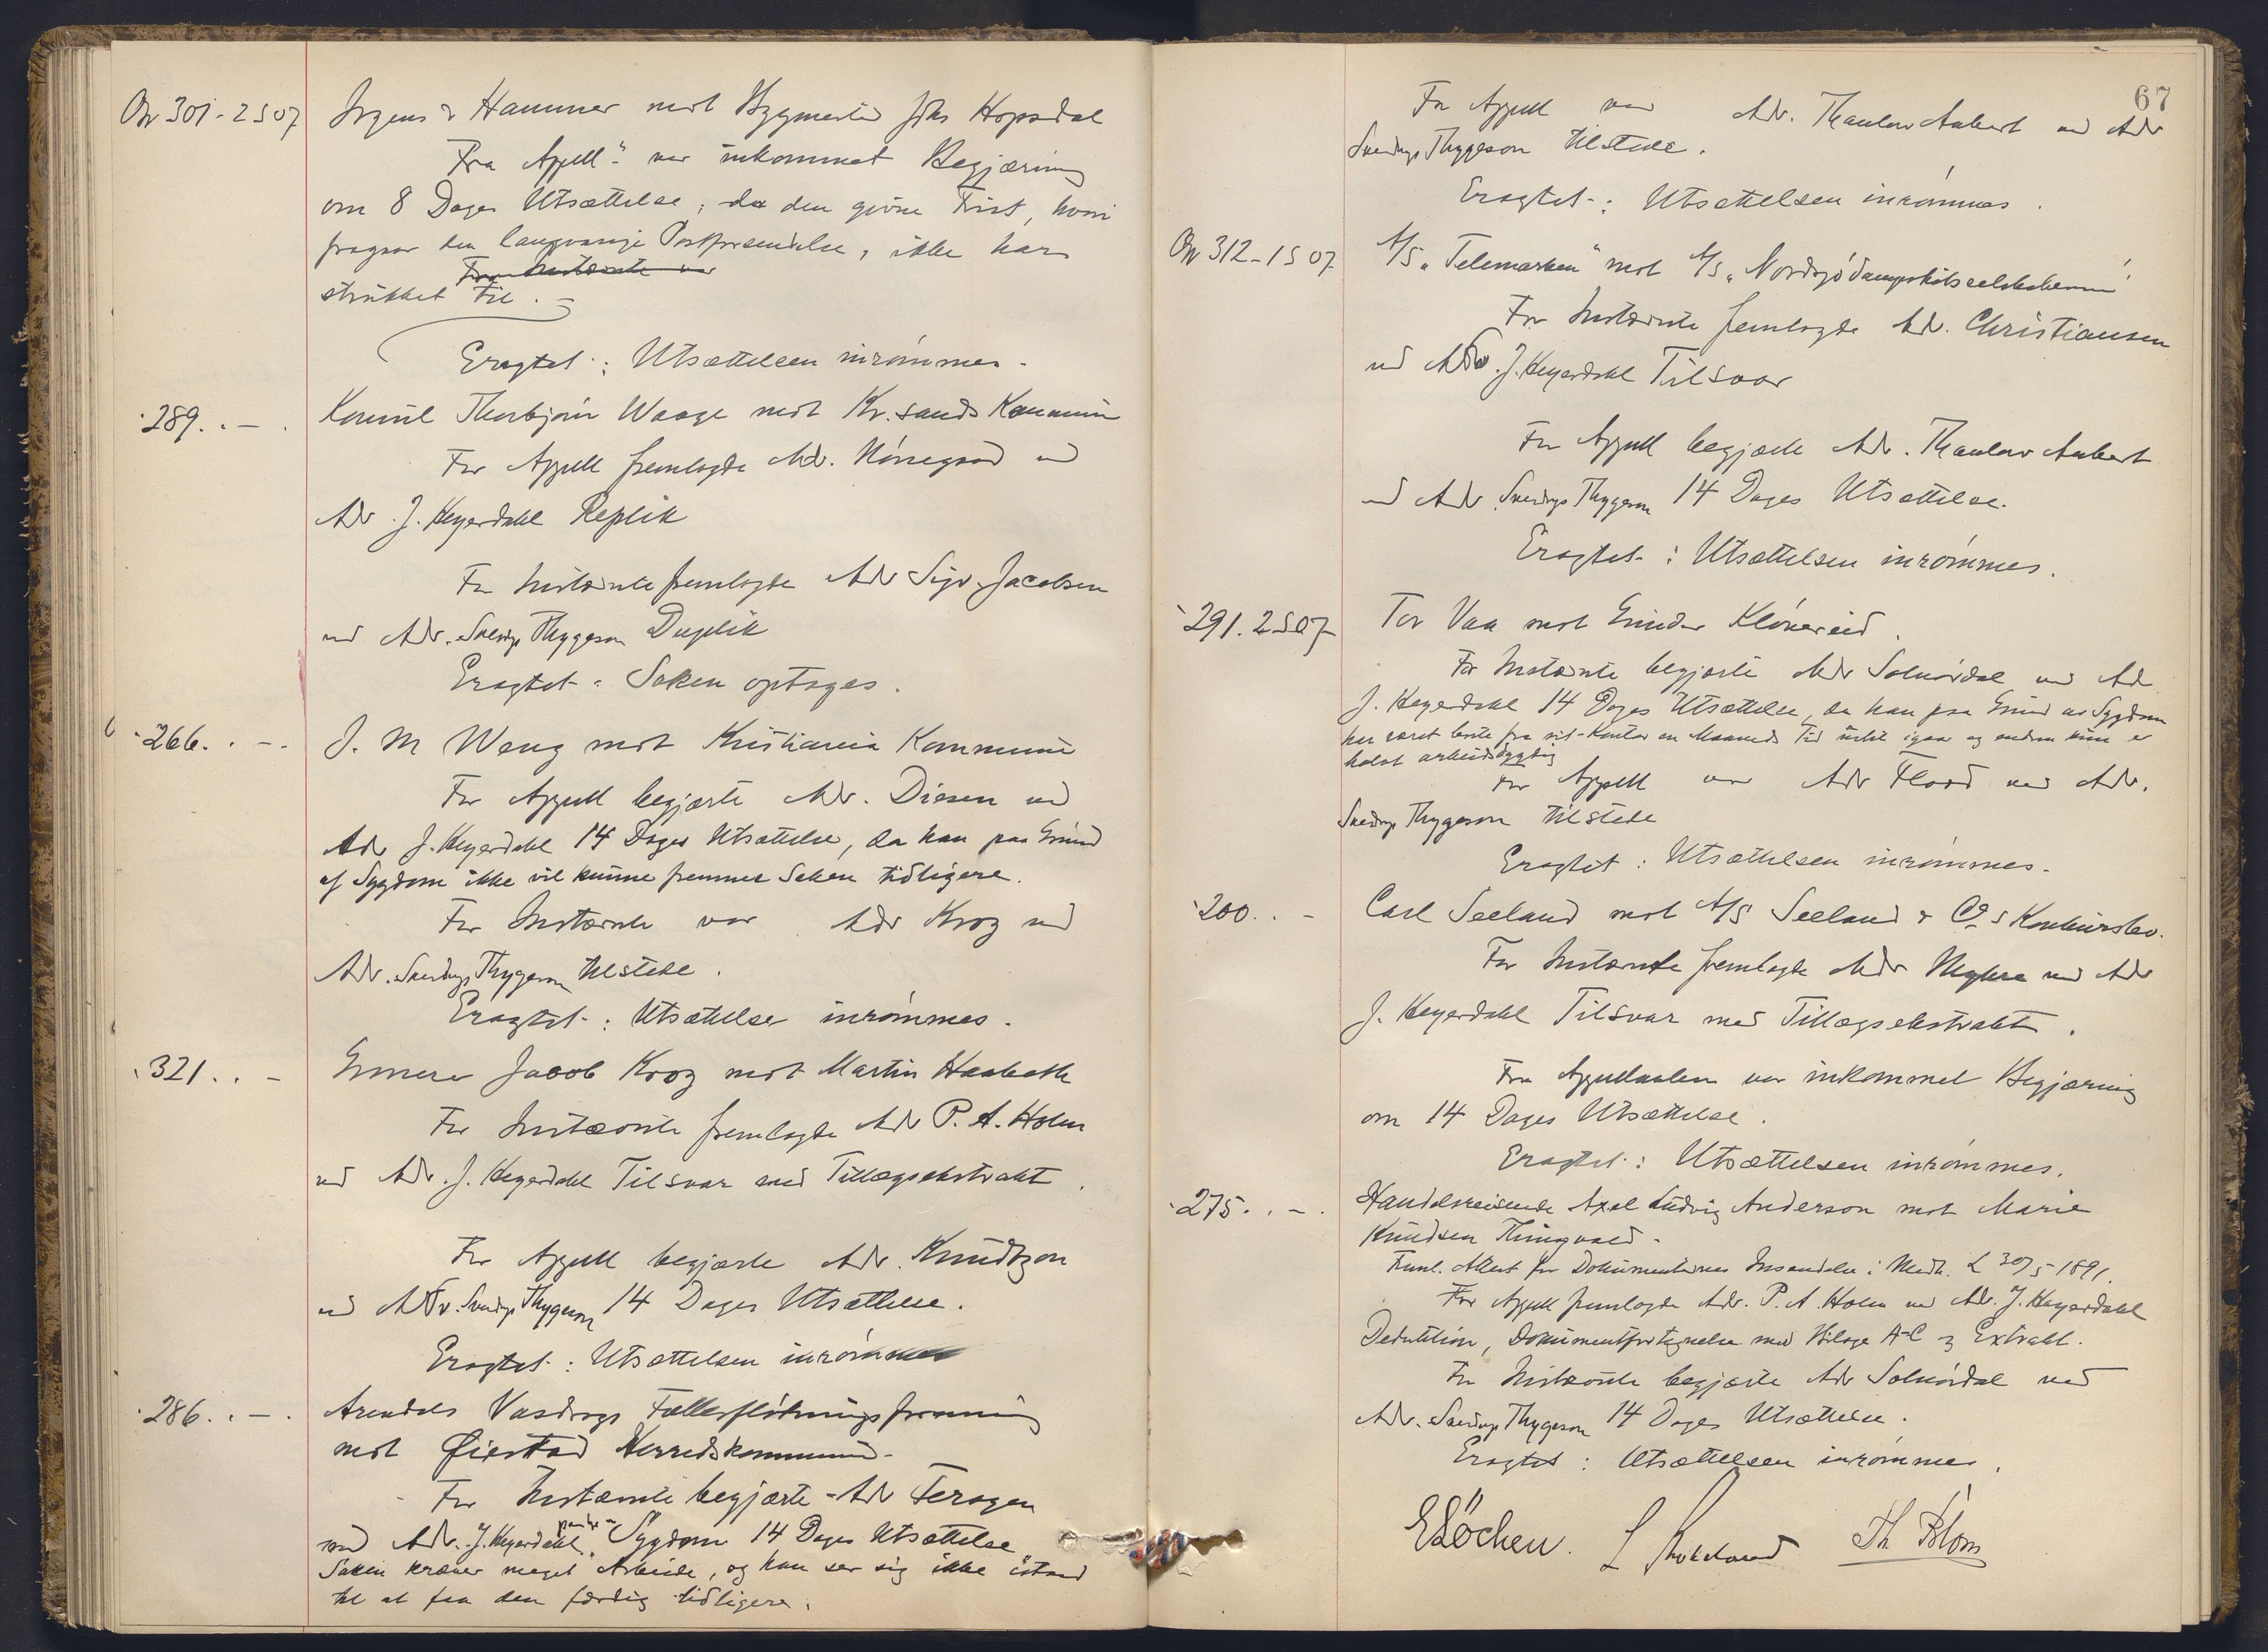 301-2 S 07 Irgens & Hammer mot Bygmester Johs Hopsdal
Fra Appell var inkommet Begjæring
om 8 Dages Utsættelse, da den givne Frist,
den langvarige Postforsendelse, ikke har
Fra Instævnte var
strukket til.
Eragtet: Utsættelsen inrömmes.
289. Konsul Thorbjörn Waage mot Kr.sands Kommune
For Appell fremlagde Adv. ved
Adv J. Heyerdahl Replik
For Instævnte fremlagde Adv Sigv. Jacobsen
ved Adv. Sverdrup Thygeson Duplik
Eragtet: Saken optages.
266. J. M Weng mot Kristiania Kommune
For Appell begjærte Adv. Diesen ved
Adv J. Heyerdahl 14 Dages Utsættelse, da han paa Grund
af Sygdom ikke vil kunne fremme Saken tidligere.
For Instævnte var Adv Krog ved
Adv. Sverdrup Thygeson tilstede.
Eragtet: Utsættelse inrömmes.
321. Jacob Krog mot Martin Haabeth
For Instævnte fremlagde Adv P. A. Holm
ved Adv. J. Heyerdahl Tilsvar med Tillægsekstrakt.
For Appell begjærte Adv. Knudtzon
ved Adv. Sverdrup Thygeson 14 Dages Utsættelse.
Eragtet: Utsættelsen inrömmes
286. Arendals Vasdrags Fællesflötningsforening
mot Øiestad Herredskommune.
For Instævnte begjærte Adv Feragen
ved Adv. J. Heyerdahl Sygdom 14 Dages Utsættelse
Saken kræver meget Arbeide, og han ser sig ikke istand
til at faa den færdig tidligere.
67
For Appell var Adv. Thaulow Aubert ved Adv
Sverdrup Thygeson tilstede.
Eragtet: Utsættelsen inrömmes.
312-1 S 07 A/S "Telemarken" mot A/S "Nordsjödampskibsselskabernes"
For Instævnte fremlagde Adv. Christiansen
ved Adv. J. Heyerdahl Tilsvar
For Appell begjærte Adv. Thaulow Aubert
ved Adv Sverdrup Thygeson 14 Dages Utsættelse.
Eragtet: Utsættelsen inrömmes.
291. 2 S 07 Tor Vaa mot Klönereid.
For Instævnte begjærte Adv Solnördal ved Adv
J. Heyerdahl 14 Dages Utsættelse, da han paa Grund av Sygdom
har været borte fra sit Kontor en Maaneds Tid indtil igaar og endnu kun er
halvt arbeidsdygtig
For Appell var Adv Flood ved Adv.
Sverdrup Thygeson tilstede
Eragtet: Utsættelsen inrömmes.
200. Carl Seeland mot A/S Seeland & Co s Konkursbo.
For Instævnte fremlagde Adv ved Adv
J. Heyerdahl Tilsvar med Tillægsekstrakt.
Fra Appellanten var inkommet Begjæring
om 14 Dages Utsættelse.
Eragtet: Utsættelsen inrömmes.
275. Handelsreisende Axel Ludvig Anderson mot Marie
Knudsen Thingvold.
Attest for Dokumenternes Insendelse i Medh. L 30/5 1891.
For Appell fremlagde Adv. P. A. Holm ved Adv. J. Heyerdahl
Deduktion, Dokumentfortegnelse med Bilage A-C og Extrakt.
For Instævnte begjærte Adv Solnördal ved
Adv. Sverdrup Thygeson 14 Dages Utsættelse.
Eragtet: Utsættelsen inrömmes.
E Löchen. Th Blom